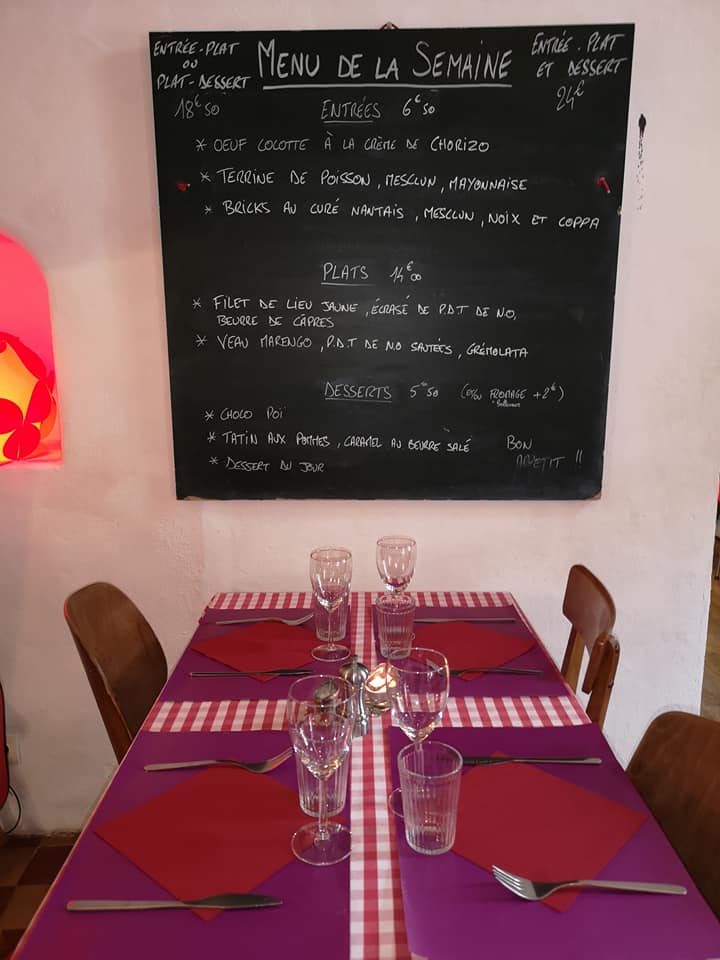 ENTRÉE-PLAT
OU
PLAT-DESSERT
18€50
MENU DE LA SEMAINE
ENTRÉE.PLAT
ET DESSERT
24€
ENTRÉES 6€50
* OEUF COCOTTE À LA CRÈME DE CHORIZO
* TERRINE DE POISSON, MESCLUN, MAYONNAISE
* BRICKS AU CURÉ NANTAIS, MESCLUN, NOIX ET COPPA
PLATS 14€00
* FILET DE LIEU JAUNE, ÉCRASÉ DE P.D.T DE N.O,
BEURRE DE CÂPRES
* VEAU MARENGO, P.D.T DE N.O SAUTÉES, GRÉMOLATA
DESSERTS 5€50 (FROMAGE +2€)
* CHOCO POÏ
* TATIN AUX POMMES, CARAMEL AU BEURRE SALÉ
* DESSERT DU JOUR
BON
APPETIT !!